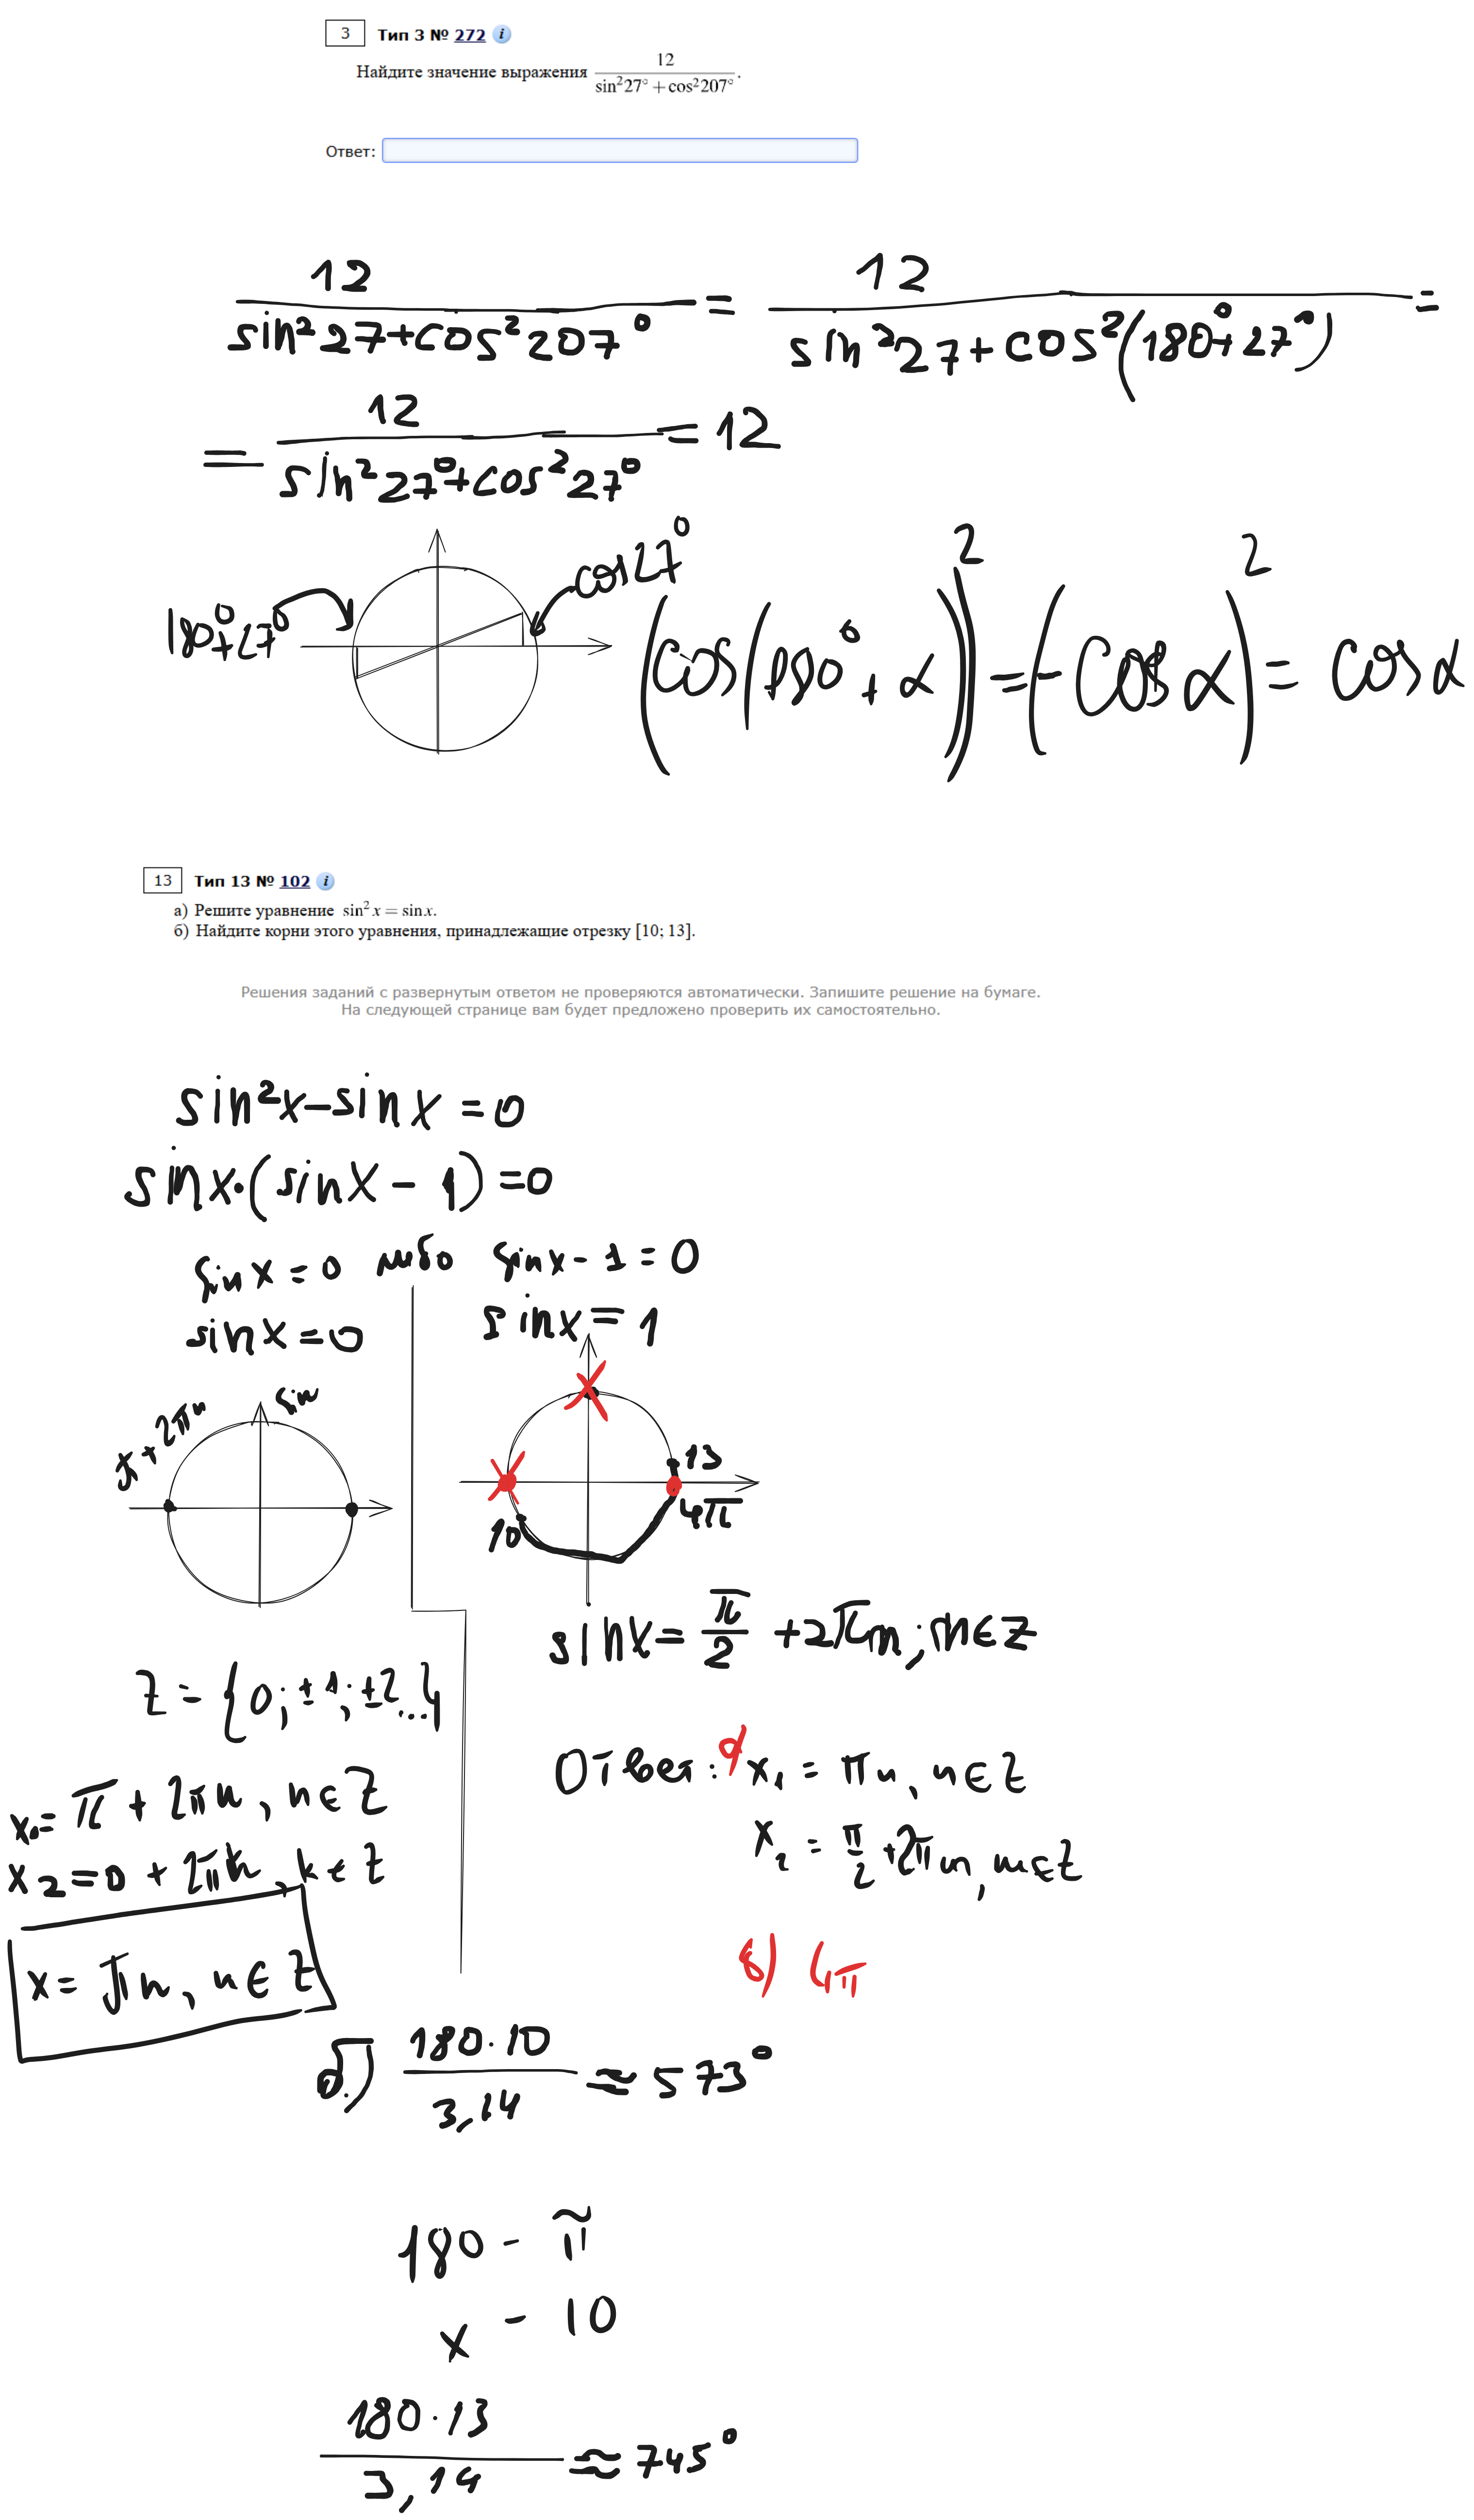 3 Тип 3 № 272 i
Найдите значение выражения 12 / (sin²27° + cos²207°).
Ответ:
12 / (sin²27+cos²207°) = 12 / (sin²27+cos²(180°+27°)) =
= 12 / (sin²27°+cos²27°) = 12
180°+27°
cos27°
(cos(180°+α))² = (-cosα)² = cosα
13 Тип 13 № 102 i
а) Решите уравнение sin²x = sinx.
б) Найдите корни этого уравнения, принадлежащие отрезку [10; 13].
Решения заданий с развернутым ответом не проверяются автоматически. Запишите решение на бумаге.
На следующей странице вам будет предложено проверить их самостоятельно.
sin²x-sinx=0
sinx·(sinx-1)=0
sinx=0 либо sinx-1=0
sinx=0
sinx=1
π+2πn
sin
13
4π
10
sinx= π/2 +2πm; m∈Z
Z = {0; ±1; ±2...}
Ответ: а) x₁ = πn, n∈Z
x₂ = π/2 +2πm, m∈Z
x₁=π+2πn, n∈Z
x₂=0+2πk, k∈Z
x=πn, n∈Z
б) 4π
б) 180·10 / 3,14 ≈ 573°
180 - π
x - 10
180·13 / 3,14 ≈ 745°